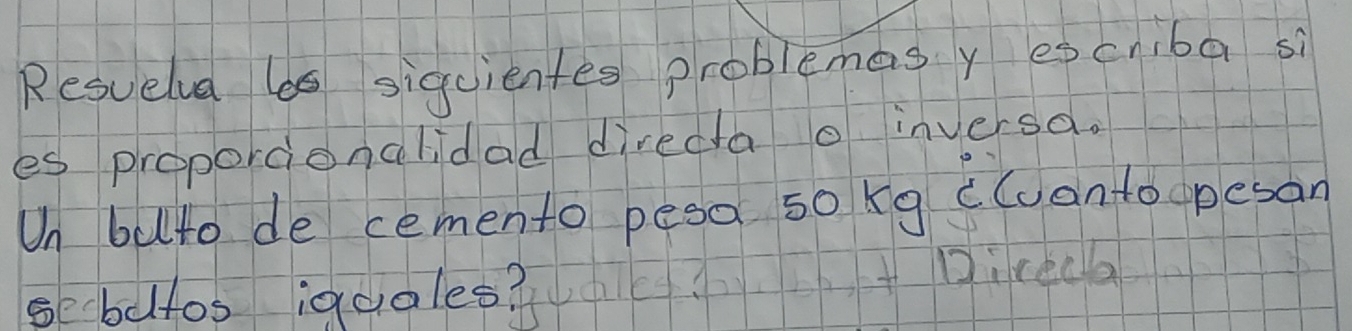 Resuelva los siguientes problemas y escriba si
es proporcionalidad directa o inversa.
Un bulto de cemento pesa 50 kg ¿Cuanto pesan
bultos iguales? Directa